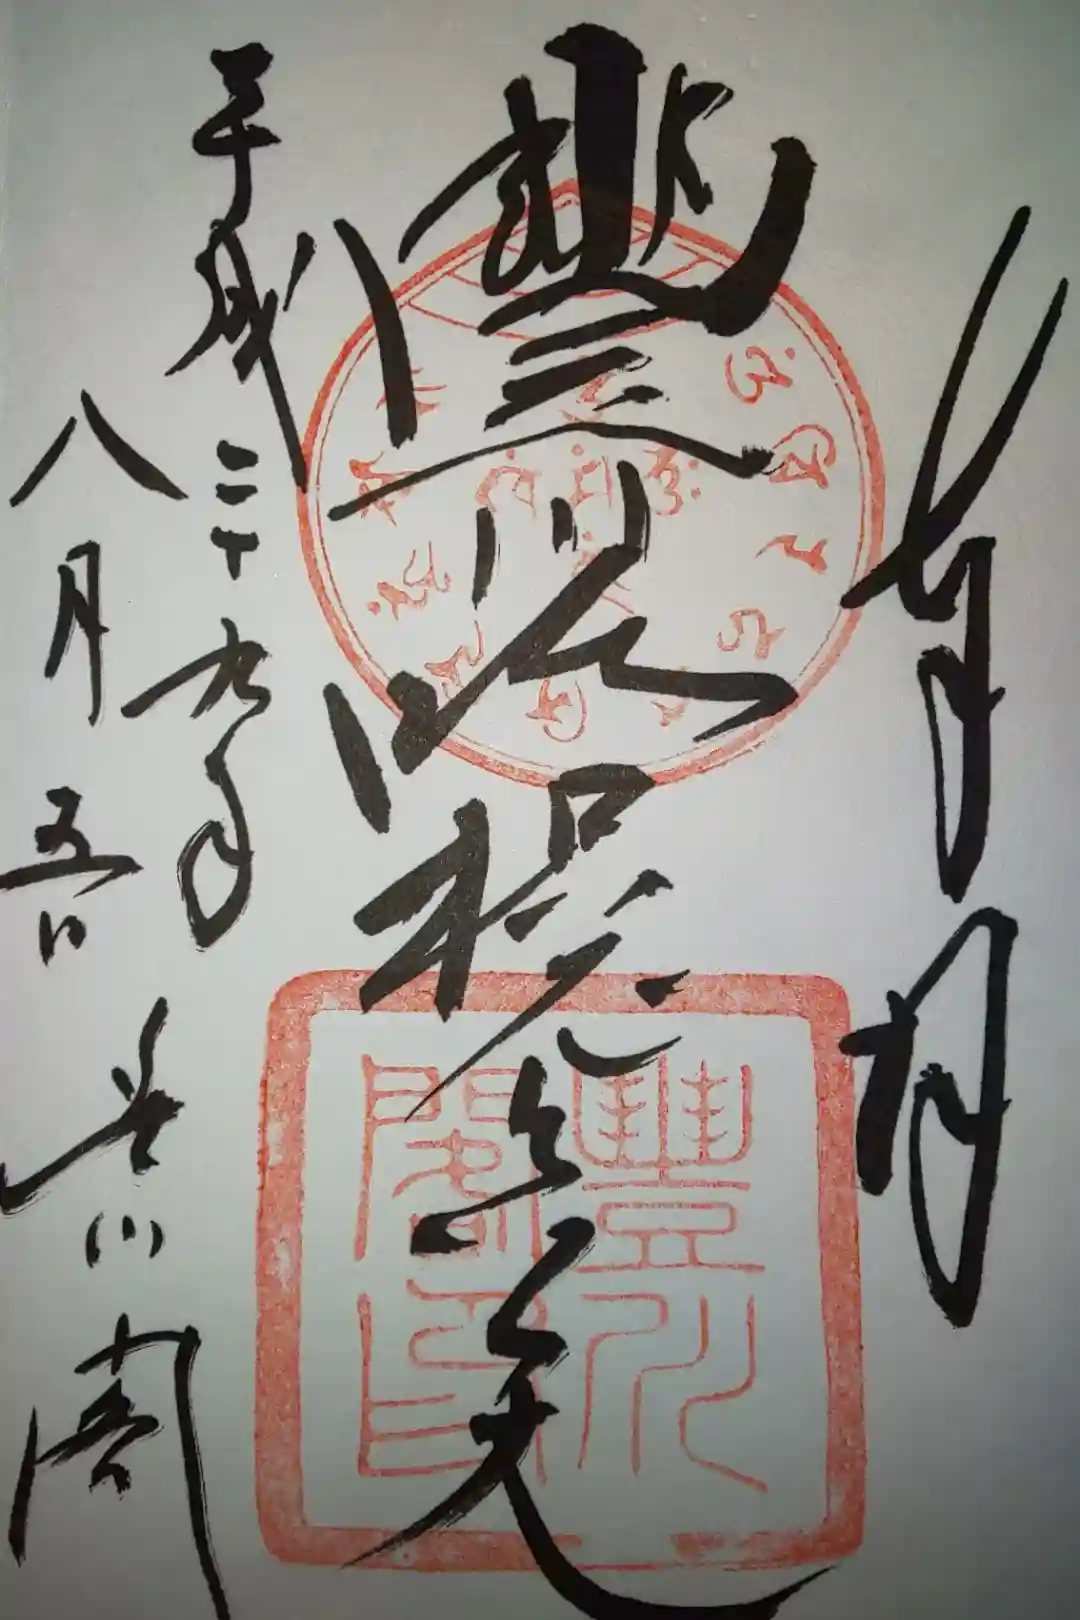 奉拝
豐川吒枳尼真天
平成二十九年
八月五日 豊川閣
豐川
閣印